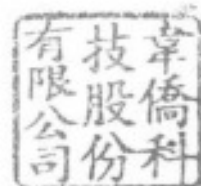 韋僑科
技股份
有限公司